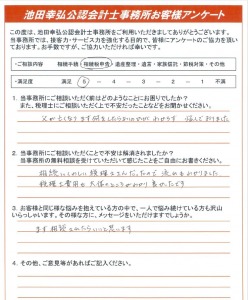 池田幸弘公認会計士事務所お客様アンケート
この度は、池田幸弘公認会計士事務所をご利用いただきましてありがとうございます。
当事務所では、接客力・サービス力を強化する目的で、皆様にアンケートのご協力を頂いて
おります。お手数ですが、ご協力いただければ幸いです。
・ご相談内容 相続手続・相続税申告・遺産整理・遺言・家族信託・節税対策・その他
・満足度 満足 5 ― 4 ― 3 ― 2 ― 1 不満
1. 当事務所にご相談いただく前はどのようなことにお困りでしたか？
また、税理士にご相談いただくことで不安だったことなどをお聞かせください。
2. 当事務所にご相談いただくことで不安は解消されましたか？
当事務所の無料相談を受けていただいて感じたことをご自由にお書きください。
相続にくわしい税理士さんだったので決めました。
3. お客様と同じ様な悩みを抱えている方の中で、一人で悩み続けている方も沢山
いらっしゃいます。その様な方に、メッセージをいただけますでしょうか。
まず相談されたらいいと思います
4. その他、ご意見等があればご記入ください。